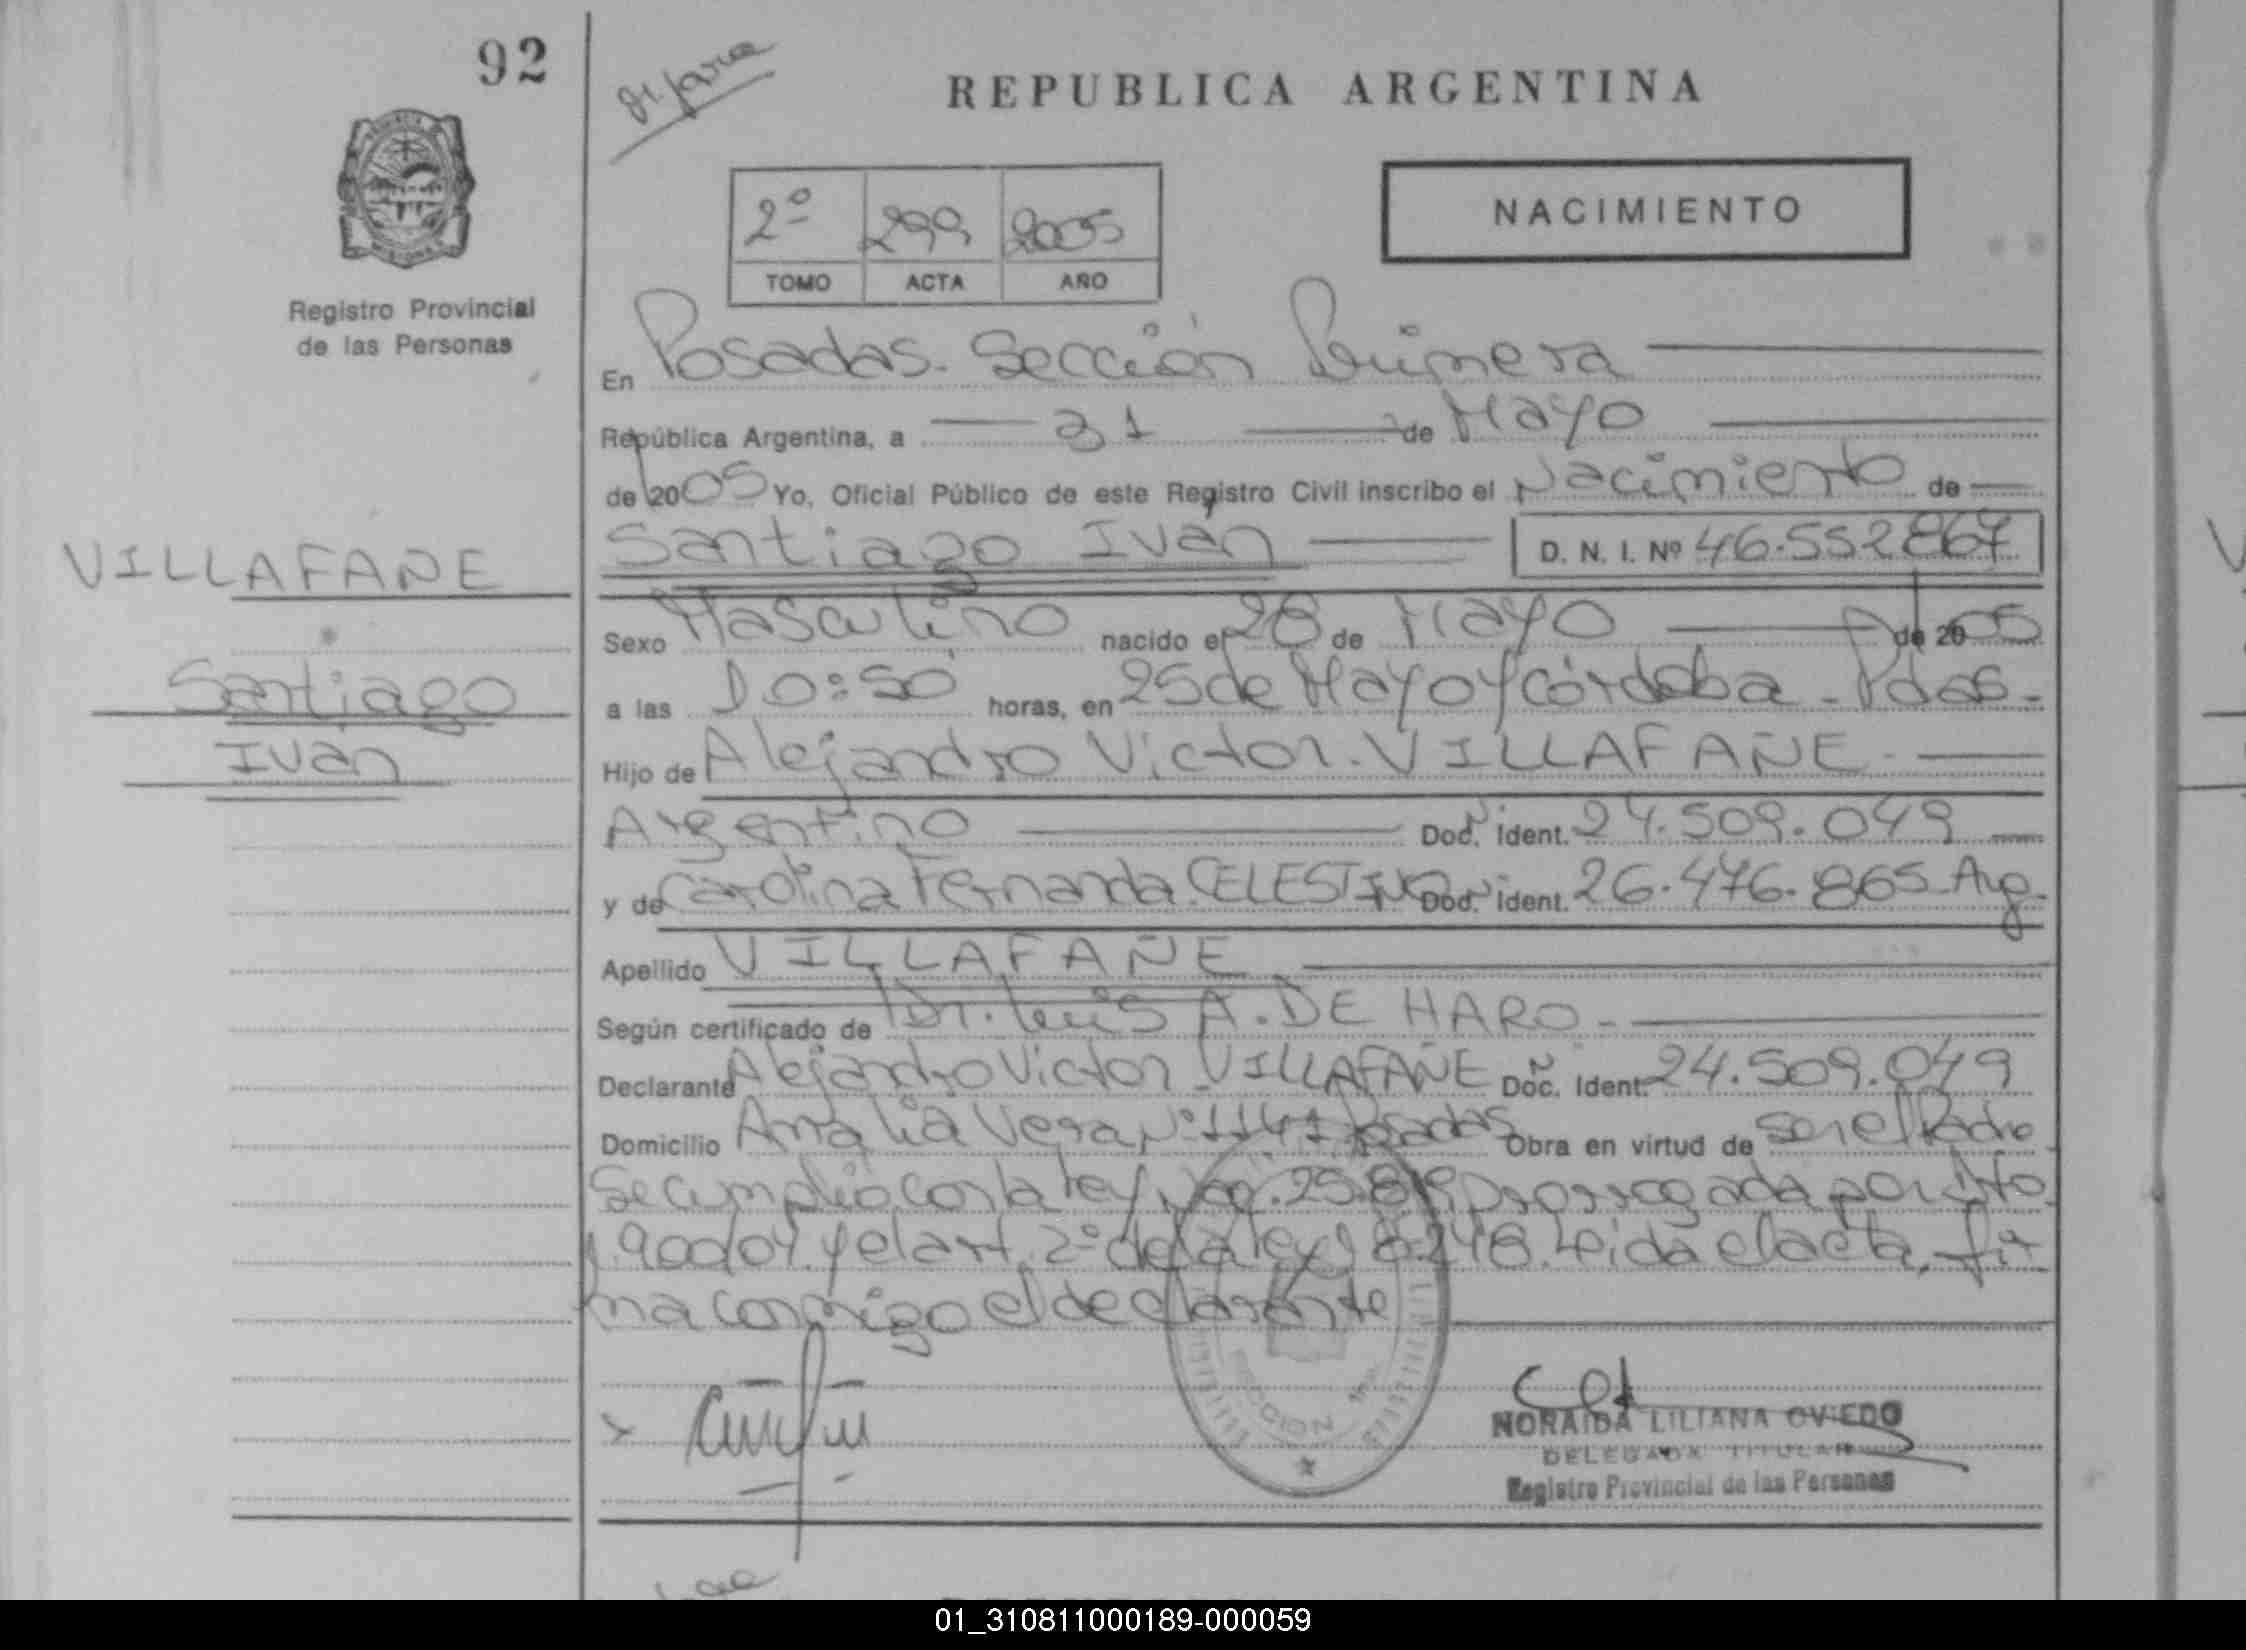 92
REPUBLICA ARGENTINA
2º 299 2005
TOMO ACTA AÑO
NACIMIENTO
Registro Provincial
de las Personas
En Posadas. Sección Primera
República Argentina, a 31 de Mayo
de 2005 Yo, Oficial Público de este Registro Civil inscribo el Nacimiento de
VILLAFAÑE
Santiago Iván D. N. I. Nº 46.552.867
Sexo Masculino nacido el 28 de Mayo de 2005
Santiago
a las 10:50 horas, en 25 de Mayo y Córdoba - Pdas -
Iván
Hijo de Alejandro Victor. VILLAFAÑE
Argentino Doc. Ident. 24.509.049
y de Carolina Fernanda. CELESTINO Doc. Ident. 26.476.865 Arg.
Apellido VILLAFAÑE
Según certificado de Dr. Luis A. DE HARO
Declarante Alejandro Victor VILLAFAÑE Doc. Ident. 24.509.049
Domicilio Amalia Vera Nº 1141 Posadas Obra en virtud de ser el Padre
Se cumplió con la ley 25.819 prorrogada por Dto.
90/04 y el art. 2º de la ley 18.248. Leida el acta, fir
ma conmigo el declarante
SECCION 1ra
NORAIDA LILIANA OVIEDO
DELEGADA TITULAR
Registro Provincial de las Personas
01_310811000189-000059